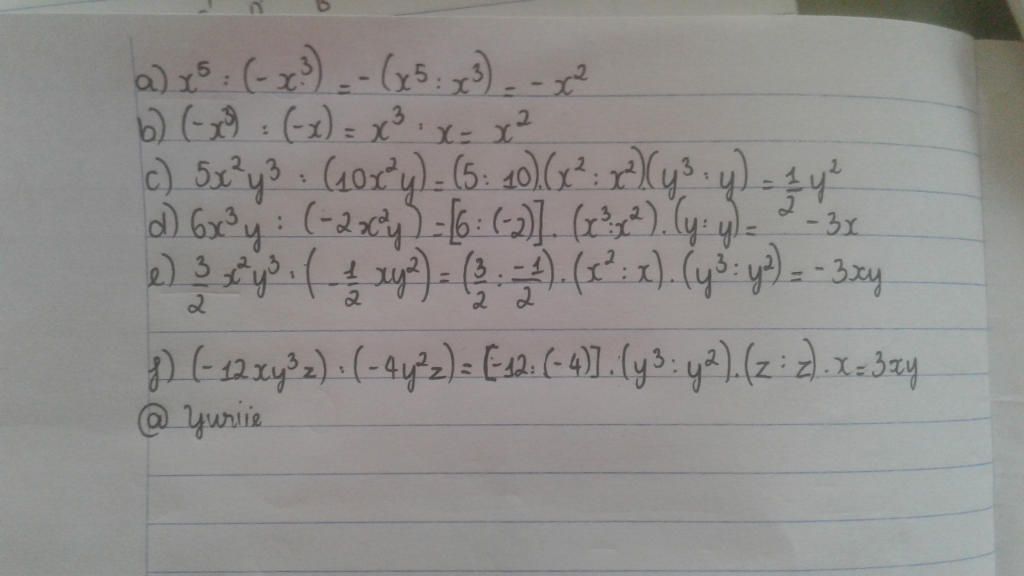 a) x⁵ : (-x³) = -(x⁵ : x³) = -x²
b) (-x³) : (-x) = x³ : x = x²
c) 5x²y³ : (10x²y) = (5 : 10).(x² : x²)(y³ : y) = 1/2 y²
d) 6x³y : (-2x²y) = [6 : (-2)] . (x³:x²) . (y : y) = -3x
e) 3/2 x²y³ : (-1/2 xy²) = (3/2 : -1/2) . (x² : x) . (y³ : y²) = -3xy
f) (-12xy³z) : (-4y²z) = [-12 : (-4)] . (y³ : y²) . (z : z) . x = 3xy
@ Yuriie